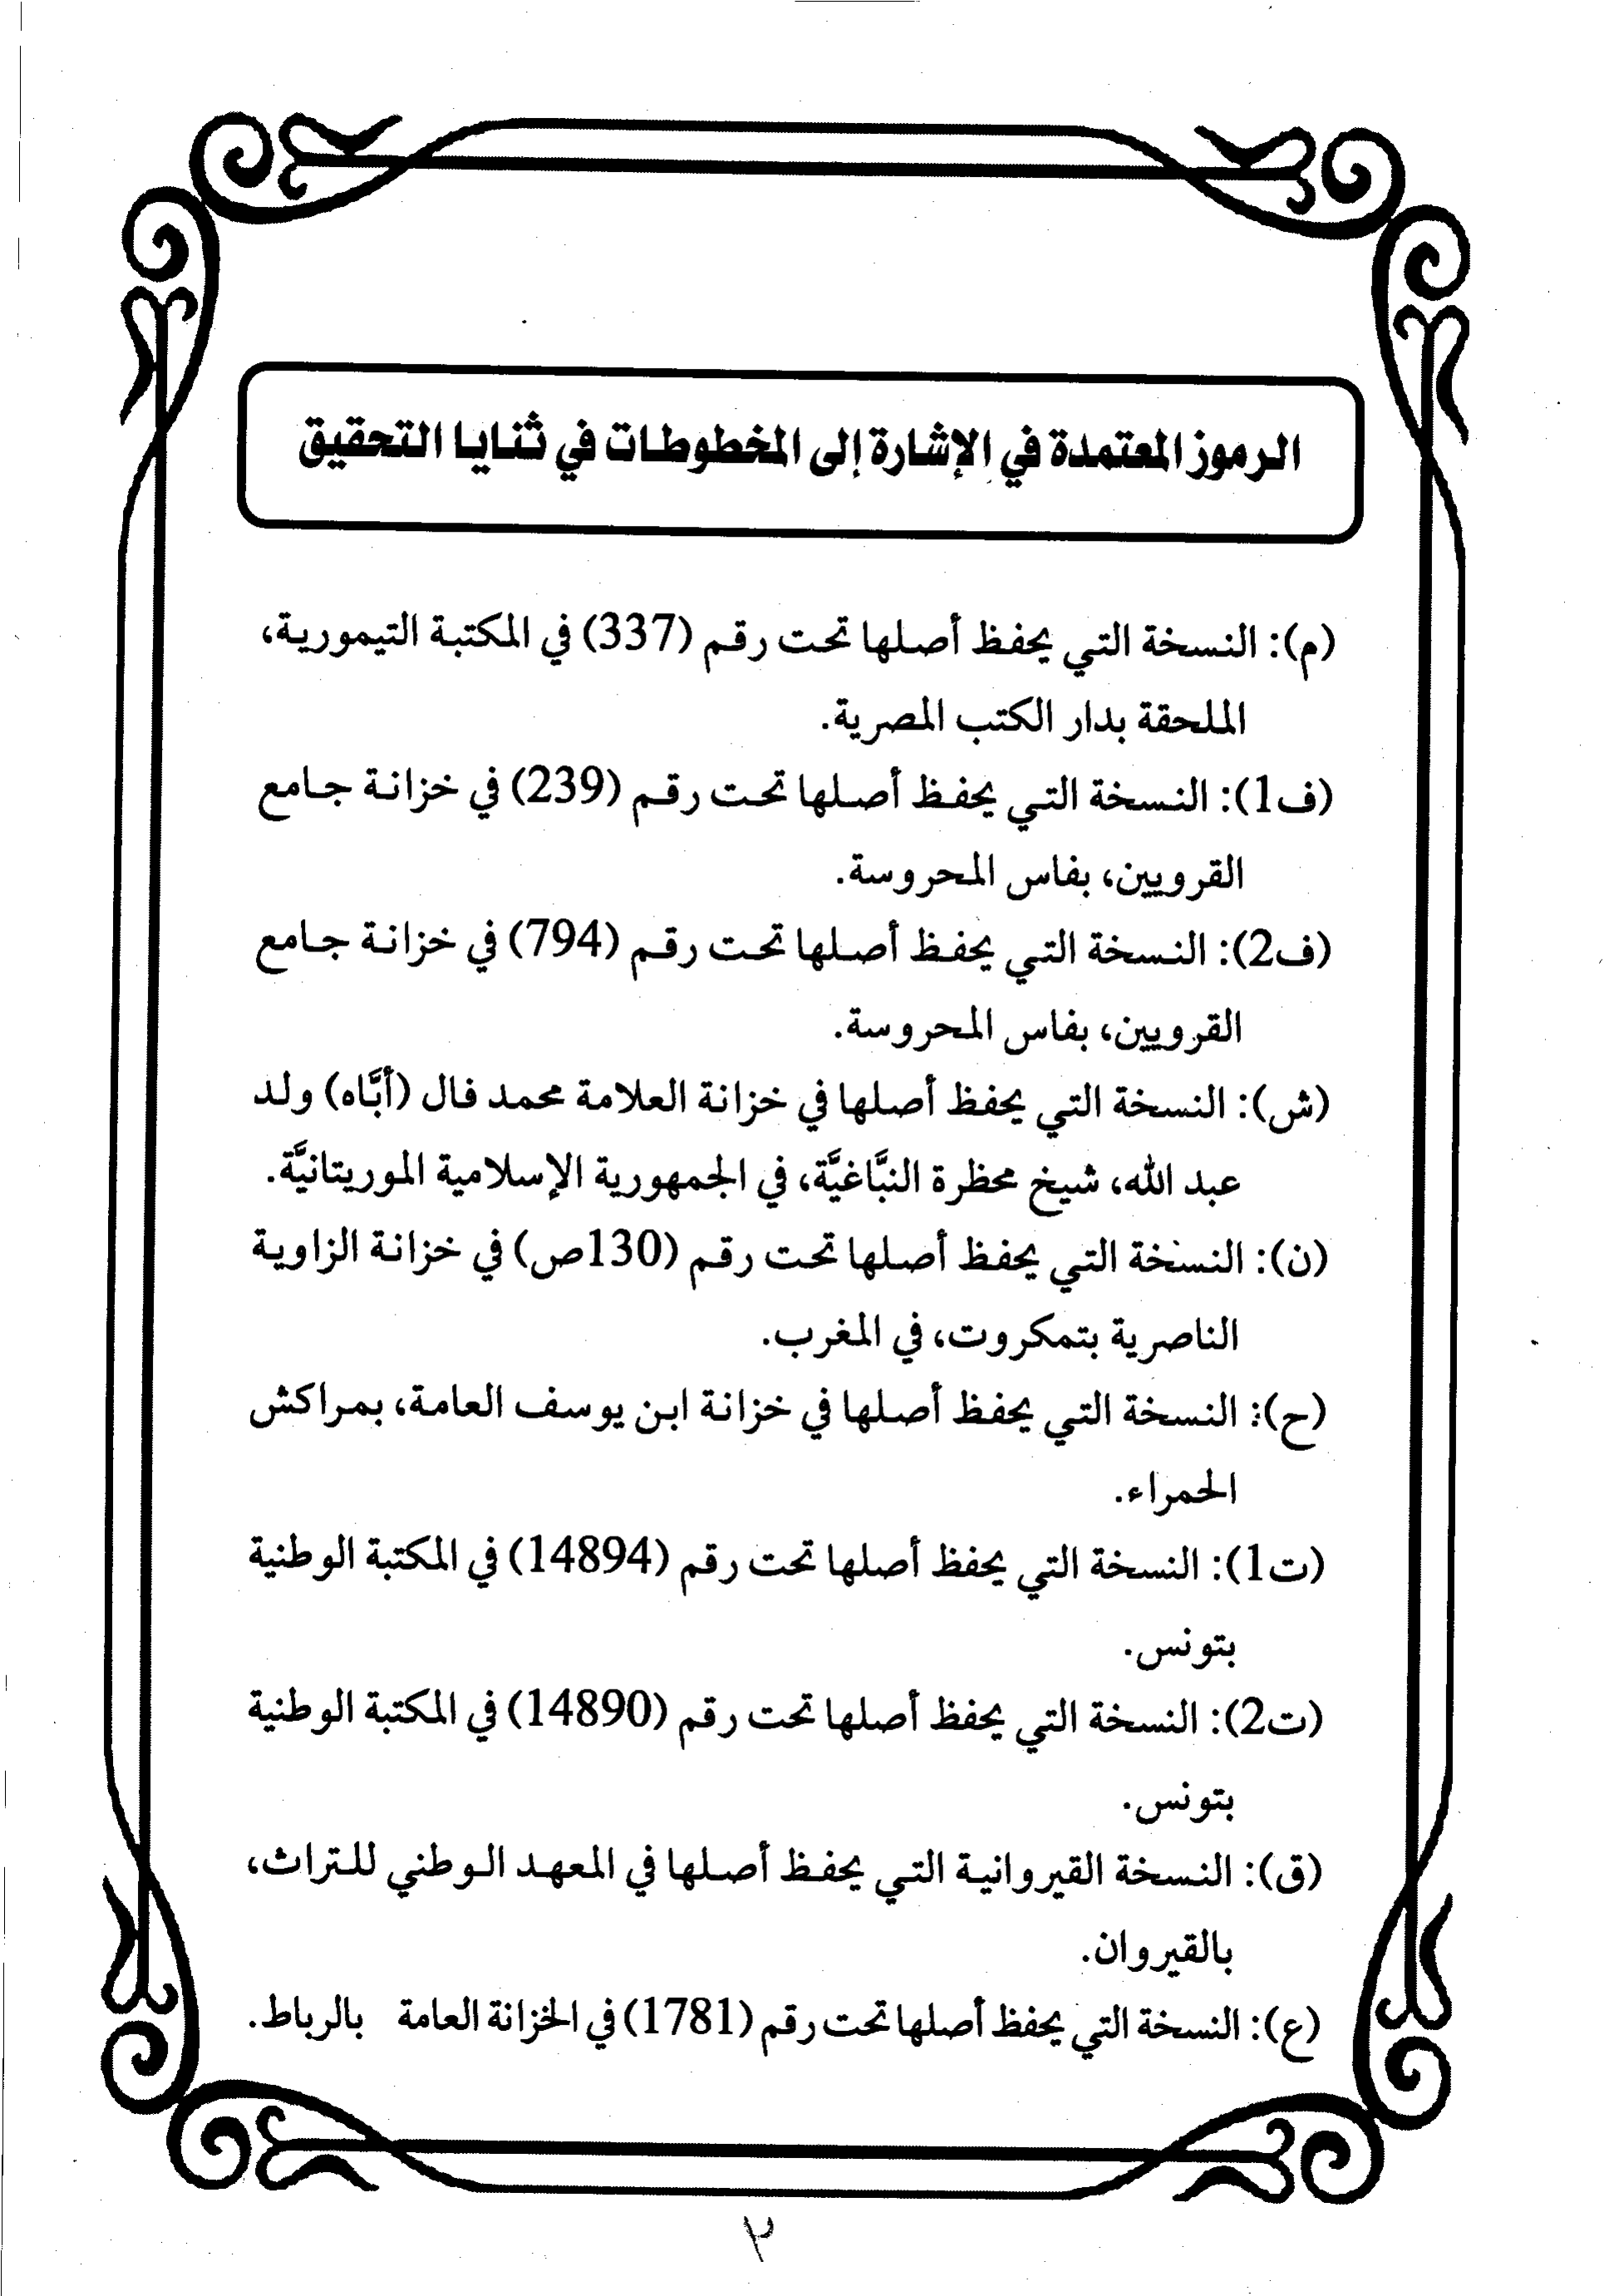 الرموز المعتمدة في الإشارة إلى المخطوطات في ثنايا التحقيق
(م): النسخة التي يحفظ أصلها تحت رقم (337) في المكتبة التيمورية،
الملحقة بدار الكتب المصرية.
(ف1): النسخة التي يحفظ أصلها تحت رقم (239) في خزانة جامع
القرويين، بفاس المحروسة.
(ف2): النسخة التي يحفظ أصلها تحت رقم (794) في خزانة جامع
القرويين، بفاس المحروسة.
(ش): النسخة التي يحفظ أصلها في خزانة العلامة محمد فال (أبَّاه) ولد
عبد الله، شيخ محظرة النبَّاغيَّة، في الجمهورية الإسلامية الموريتانيَّة.
(ن): النسخة التي يحفظ أصلها تحت رقم (130ص) في خزانة الزاوية
الناصرية بتمكروت، في المغرب.
(ح): النسخة التي يحفظ أصلها في خزانة ابن يوسف العامة، بمراكش
الحمراء.
(ت1): النسخة التي يحفظ أصلها تحت رقم (14894) في المكتبة الوطنية
بتونس.
(ت2): النسخة التي يحفظ أصلها تحت رقم (14890) في المكتبة الوطنية
بتونس.
(ق): النسخة القيروانية التي يحفظ أصلها في المعهد الوطني للتراث،
بالقيروان.
(ع): النسخة التي يحفظ أصلها تحت رقم (1781) في الخزانة العامة بالرباط.
٢